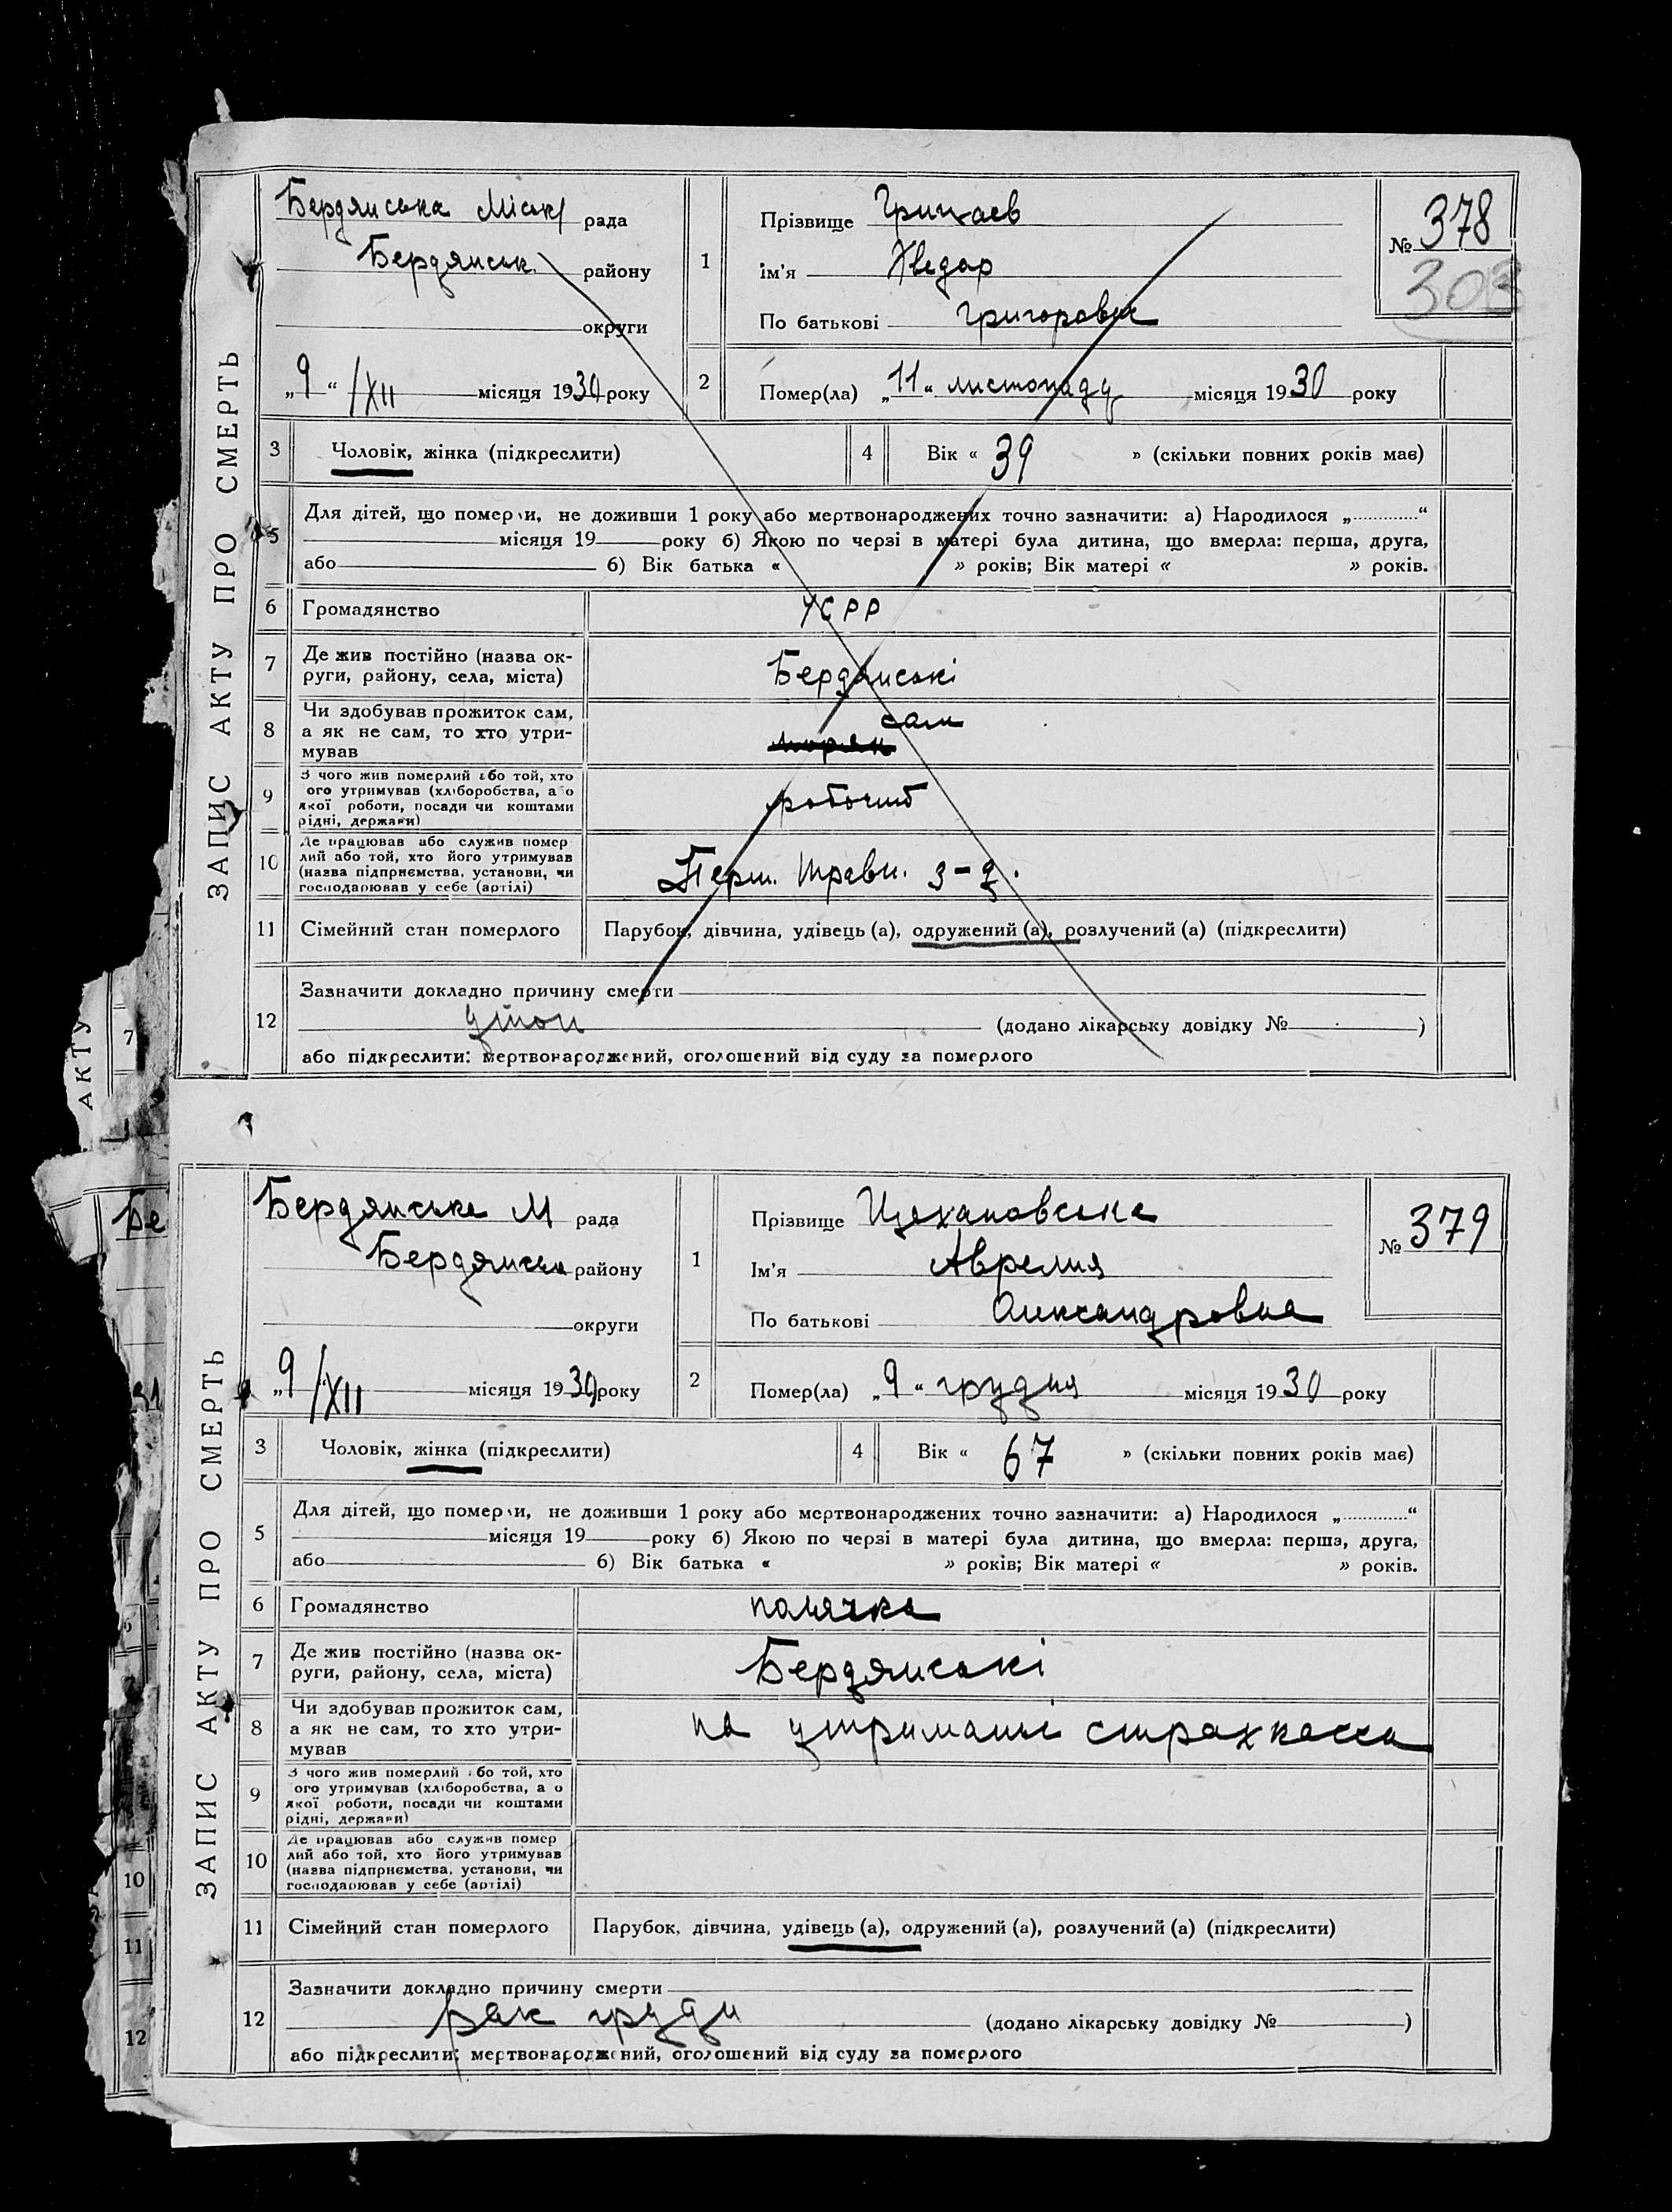 ЗАПИС АКТУ ПРО СМЕРТЬ
Бердянська Міськ рада
Бердянськ. району
округи
„9“ /XII місяця 1930 року
1 Прізвище
Ім'я Хведор
По батькові Григоровіч
№ 378
303
2 Помер(ла) „11“ листопаду місяця 1930 року
3 Чоловік, жінка (підкреслити)
4 Вік « 39 » (скільки повних років має)
5 Для дітей, що померли, не доживши 1 року або мертвонароджених точно зазначити: а) Народилося „............“
місяця 19 року б) Якою по черзі в матері була дитина, що вмерла: перша, друга,
або б) Вік батька « » років; Вік матері « » років.
6 Громадянство УСРР
7 Де жив постійно (назва ок-
руги, району, села, міста) Бердянські
8 Чи здобував прожиток сам,
а як не сам, то хто утри-
мував моряк сам
9 З чого жив померлий або той, хто
ого утримував (хліборобства, або
якої роботи, посади чи коштами
рідні, держави) робочий
10 Де працював або служив помер
лий або той, хто його утримував
(назва підприємства, установи, чи
господарював у себе (артілі) Перш. Травн. з-д.
11 Сімейний стан померлого Парубок, дівчина, удівець (а), одружений (а), розлучений (а) (підкреслити)
12 Зазначити докладно причину смерти
утоп (додано лікарську довідку № )
або підкреслити: мертвонароджений, оголошений від суду за померлого
АКТУ
7
ЗАПИС АКТУ ПРО СМЕРТЬ
Бердянська М рада
Бердянськ району
округи
„9 /XII місяця 1930 року
1 Прізвище Цехановська
Ім'я Аврелия
По батькові Олександровна
№ 379
2 Помер(ла) „9“ грудня місяця 1930 року
3 Чоловік, жінка (підкреслити)
4 Вік « 67 » (скільки повних років має)
5 Для дітей, що померли, не доживши 1 року або мертвонароджених точно зазначити: а) Народилося „............“
місяця 19 року б) Якою по черзі в матері була дитина, що вмерла: перша, друга,
або б) Вік батька « » років; Вік матері « » років.
6 Громадянство полячка
7 Де жив постійно (назва ок-
руги, району, села, міста) Бердянські
8 Чи здобував прожиток сам,
а як не сам, то хто утри-
мував на утриманні страхкасса
9 З чого жив померлий або той, хто
ого утримував (хліборобства, а о
якої роботи, посади чи коштами
рідні, держави)
10 Де працював або служив помер
лий або той, хто його утримував
(назва підприємства, установи, чи
господарював у себе (артілі)
11 Сімейний стан померлого Парубок, дівчина, удівець (а), одружений (а), розлучений (а) (підкреслити)
12 Зазначити докладно причину смерти
рак груди (додано лікарську довідку № )
або підкреслити: мертвонароджений, оголошений від суду за померлого
Бе
10
11
12